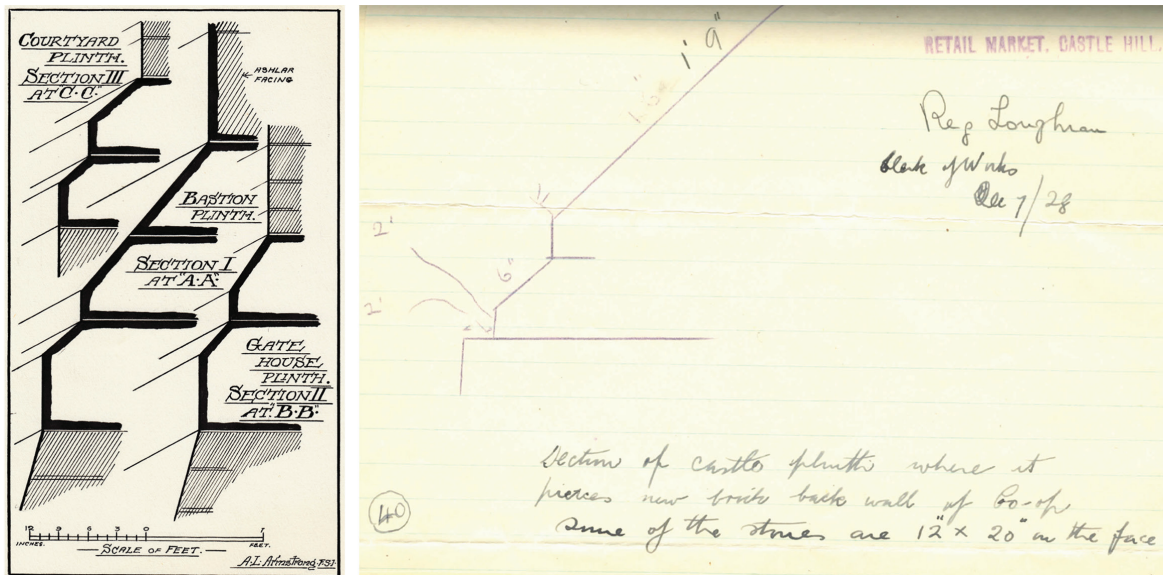 COURTYARD
PLINTH.
SECTION III
AT "C·C"
ASHLAR
FACING
BASTION
PLINTH.
SECTION I
AT "A·A"
GATE
HOUSE
PLINTH.
SECTION II
AT "B·B"
12 9 6 3 0 1
INCHES. FEET.
SCALE OF FEET.
A.L. Armstrong. F.S.I.
1' 9"
RETAIL MARKET. CASTLE HILL.
Reg Loughran
Clerk of Works
Dec 7/28
2'
6"
2'
Section of castle plinth where it
pierces new brick back wall of Co-op
40
Some of the stones are 12" x 20" on the face